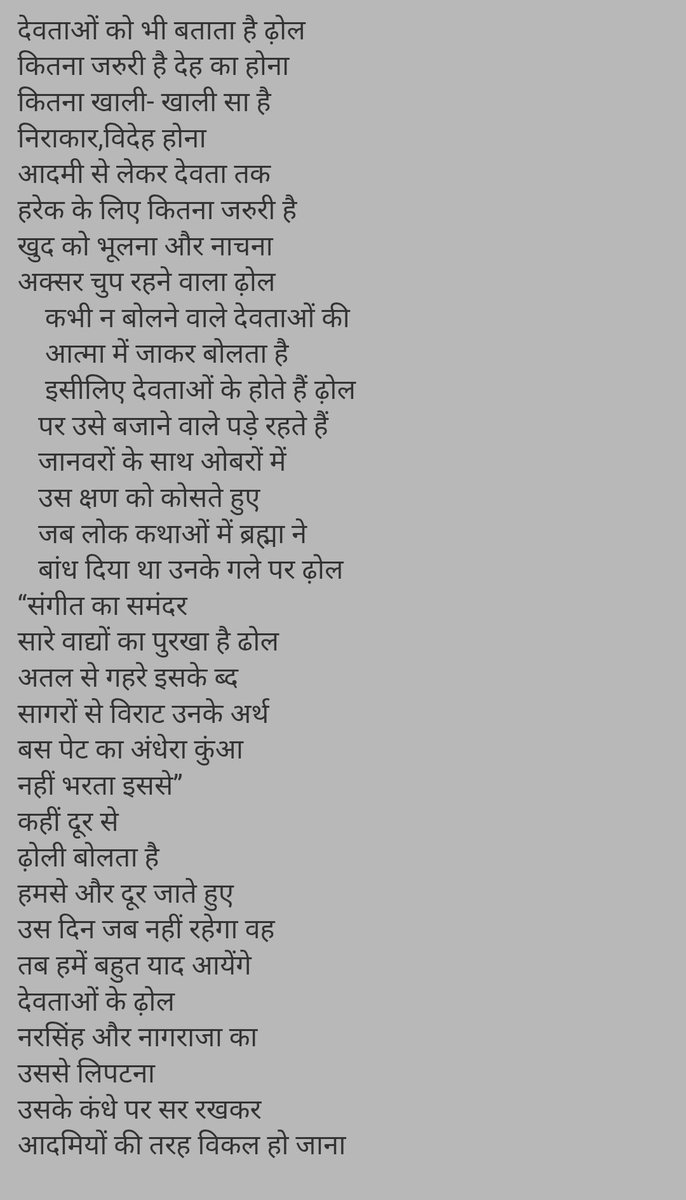 देवताओं को भी बताता है ढ़ोल
कितना जरुरी है देह का होना
कितना खाली- खाली सा है
निराकार,विदेह होना
आदमी से लेकर देवता तक
हरेक के लिए कितना जरुरी है
खुद को भूलना और नाचना
अक्सर चुप रहने वाला ढ़ोल
कभी न बोलने वाले देवताओं की
आत्मा में जाकर बोलता है
इसीलिए देवताओं के होते हैं ढ़ोल
पर उसे बजाने वाले पड़े रहते हैं
जानवरों के साथ ओबरों में
उस क्षण को कोसते हुए
जब लोक कथाओं में ब्रह्मा ने
बांध दिया था उनके गले पर ढ़ोल
“संगीत का समंदर
सारे वाद्यों का पुरखा है ढोल
अतल से गहरे इसके ब्द
सागरों से विराट उनके अर्थ
बस पेट का अंधेरा कुंआ
नहीं भरता इससे”
कहीं दूर से
ढ़ोली बोलता है
हमसे और दूर जाते हुए
उस दिन जब नहीं रहेगा वह
तब हमें बहुत याद आयेंगे
देवताओं के ढ़ोल
नरसिंह और नागराजा का
उससे लिपटना
उसके कंधे पर सर रखकर
आदमियों की तरह विकल हो जाना